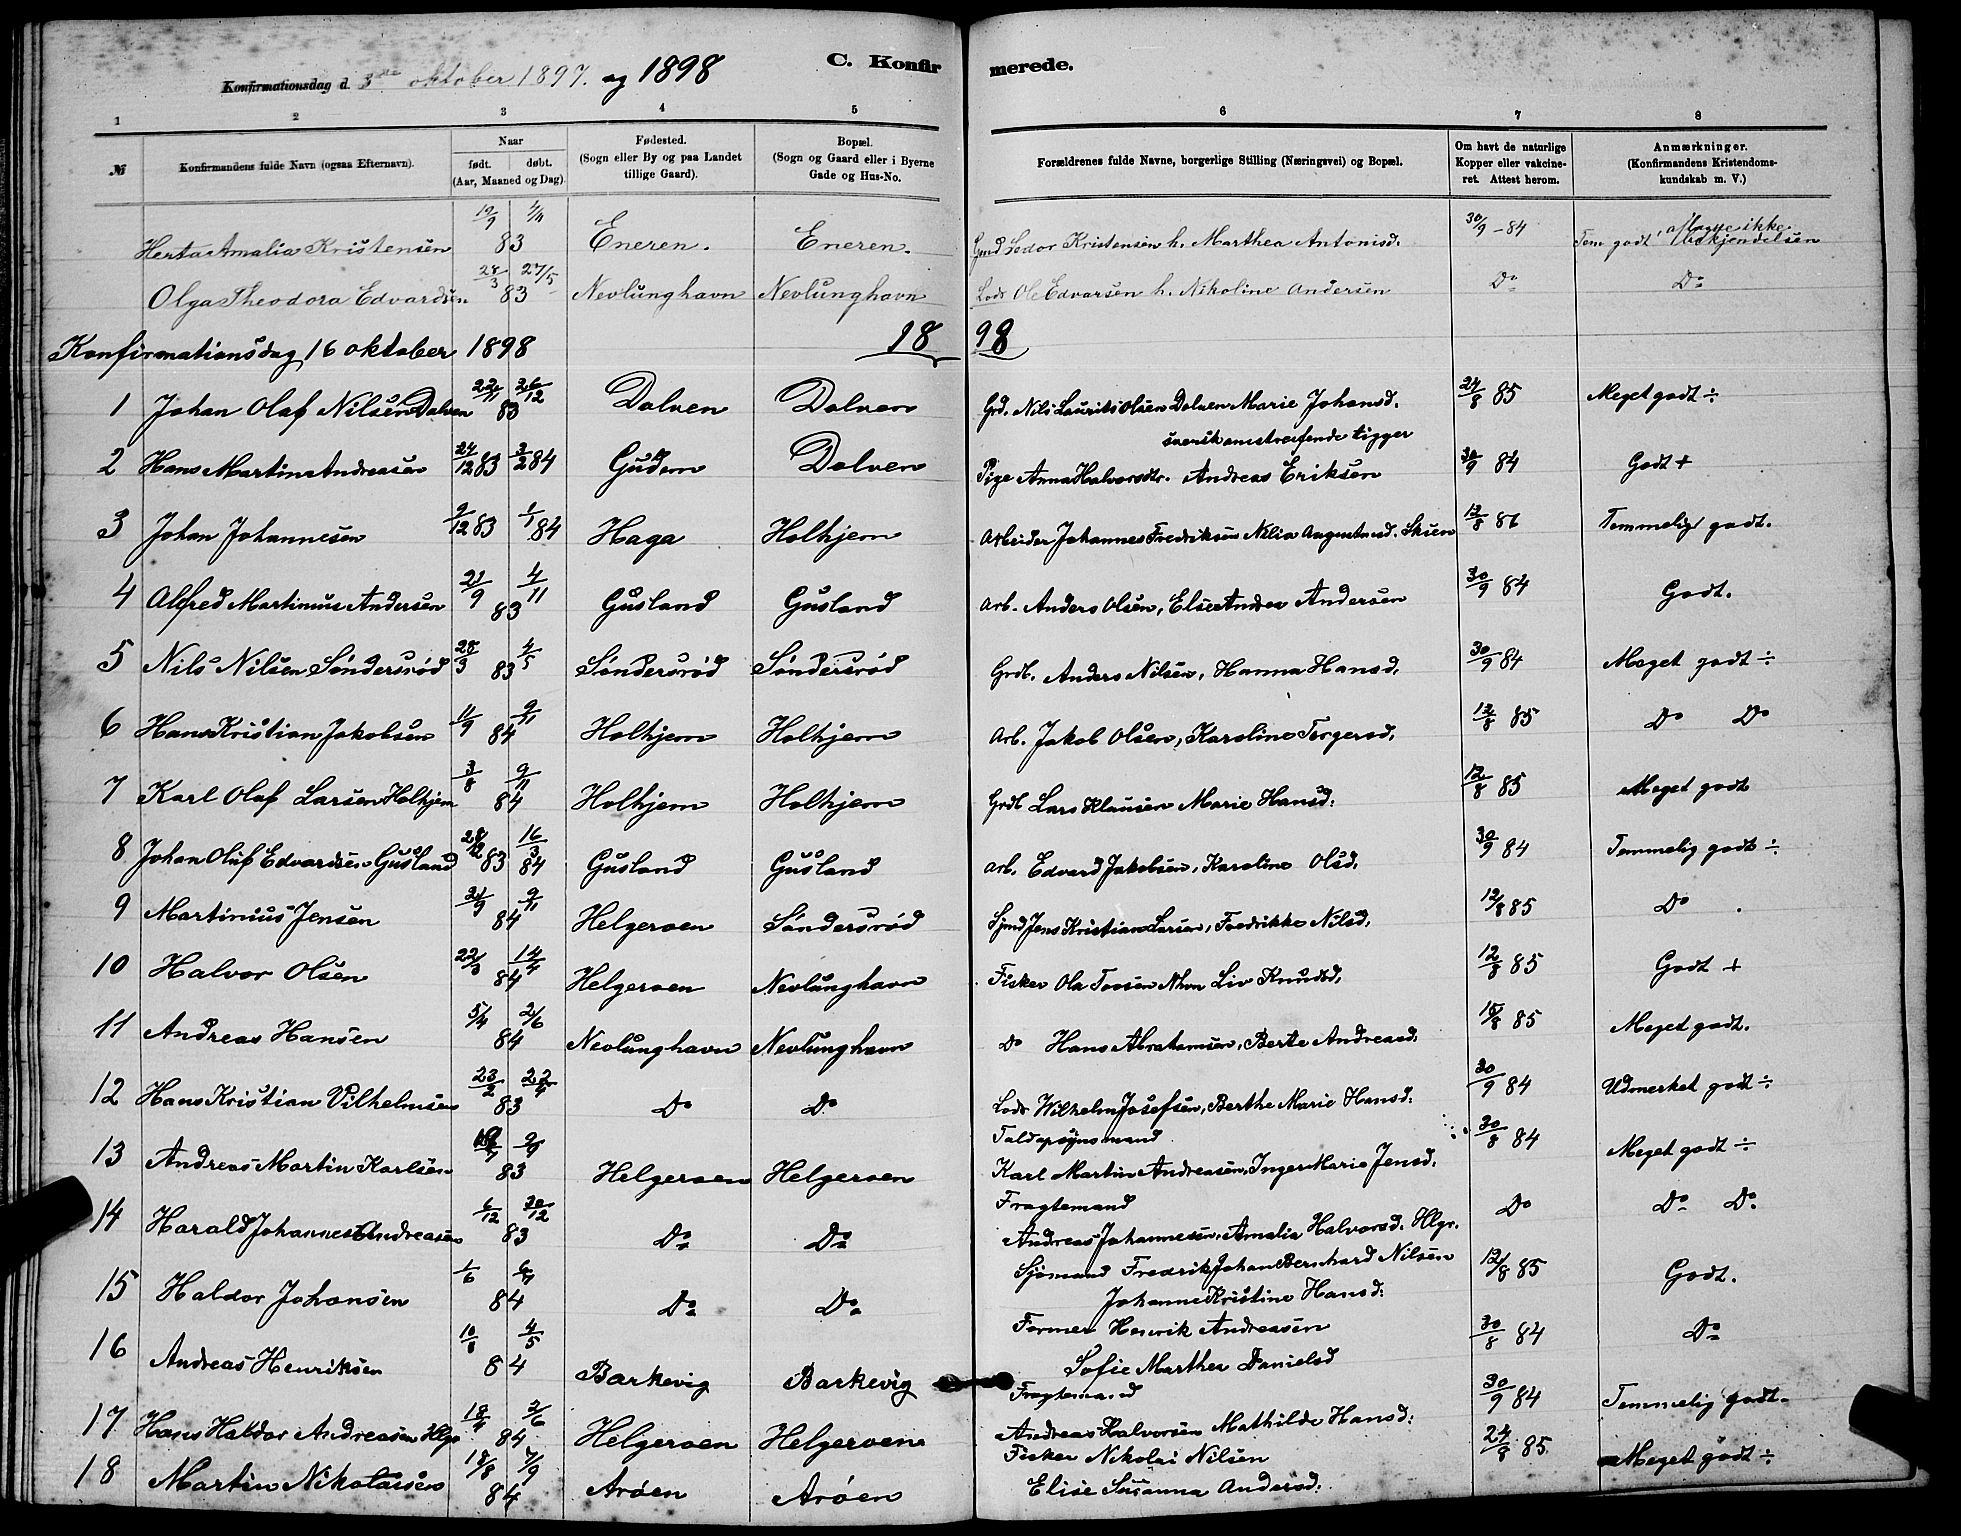 Konfirmationsdag d. 3die oktober 1897. og 1898
C. Konfirmerede.
1 2 3 4 5 6 7 8
№
Konfirmandens fulde Navn (ogsaa Efternavn).
Naar
født. døbt.
(Aar, Maaned og Dag).
Fødested.
(Sogn eller By og paa Landet
tillige Gaard).
Bopæl.
(Sogn og Gaard eller i Byerne
Gade og Hus-No.
Forældrenes fulde Navne, borgerlige Stilling (Næringsvei) og Bopæl.
Om havt de naturlige
Kopper eller vakcine-
ret. Attest herom.
Anmærkninger.
(Konfirmandens Kristendoms-
kundskab m. V.)
Herta Amalia Kristensen 19/9 83 Eneren. Eneren. Kristensen h. Marthea Antonisd. 30/9 - 84 Tem godt
Olga Theodora Edvardsen 28/3 27/5 83 Nevlunghavn Nevlunghavn Lods Ole Edvarsen h. Nikoline Andersen Do Do
Konfirmationsdag 16 oktober 1898 1898
1 Johan Olaf Nilsen Dolven 22/11 26/12 83 Dolven Dolven Grd. Nils Laurits Olsen Dolven Marie Johansd. 24/8 85 Meget godt ÷
svensk omstreifende tigger
2 Hans Martin Andreasen 24/12 83 3/2 84 Gudem Dolven Pige Anna Halvorsdtr. Andreas Eriksen 30/9 84 Godt +
3 Johan Johannesen 9/12 83 1/1 84 Haga Holhjem Arbeider Johannes Fredriksen Nilia Augustinusd. Skien 12/8 86 Temmelig godt.
4 Alfred Martinius Andersen 21/9 4/11 83 Gusland Gusland Arb. Anders Olsen, Else Andrea Andersen 30/9 84 Godt.
5 Nils Nilsen Söndersröd 28/3 4/5 83 Söndersröd Söndersröd Grdb. Anders Nilsen, Hanna Hansd. 30/9 84 Meget godt ÷
6 Hans Kristian Jakobsen 11/9 9/11 84 Holhjem Holhjem Arb. Jakob Olsen, Karoline Torgersd. 12/8 85 Do Do
7 Karl Olaf Larsen Holhjem 3/8 9/11 84 Holhjem Holhjem Grdb Lars Klausen Marie Hansd. 12/8 85 Meget godt
8 Johan Oluf Edvardsen Gusland 28/12 83 16/3 84 Gusland Gusland Arb. Edvard Jakobsen, Karoline Olsd. 30/9 84 Temmelig godt ÷
9 Martinius Jensen 21/9 9/11 84 Helgeroen Söndersröd Sjmd Jens Kristian Larsen, Fredrikke Nilsd. 12/8 85 Do
10 Halvor Olsen 22/3 14/4 84 Helgeroen Nevlunghavn Fisker Ola Toosen Nhvn Liv Knudsd. 12/8 85 Godt +
11 Andreas Hansen 5/4 2/6 84 Nevlunghavn Nevlunghavn Do Hans Abrahamsen, Berte Andreasd. 15/8 85 Meget godt.
12 Hans Kristian Vilhelmsen 23/2 22/4 83 Do Do Lods Wilhelm Josefsen, Berthe Marie Hansd. 30/9 84 Udmerket godt ÷
Toldopsynsmand
13 Andreas Martin Karlsen 83 Helgeroen Helgeroen Karl Martin Andreasen, Inger Marie Jensd. 30/8 84 Meget godt ÷
Fragtemand
14 Harald Johannes Andreasen 6/12 30/12 83 Do Do Andreas Johannesen, Amalia Halvorsd. Hlgr. Do Do Do
Sjömand Fredrik Johan Bernhard Nilsen
15 Haldor Johansen 1/6 84 Do Do Johanne Kristine Hansd. 12/8 85 Godt.
Former Henrik Andreasen
16 Andreas Henriksen 4/5 84 Barkevig Barkevig Sofie Marthea Danielsd 30/8 84 Do
Fragtemand
17 Hans Haldor Andreasen Hlgr 18/4 2/6 84 Helgeroen Helgeroen Andreas Halvorsen Mathilde Hansd. 30/9 84 Temmelig godt.
Fisker Nikolai Nilsen
18 Martin Nikolaisen 18/8 7/9 84 Aröen Aröen Elise Susanna Andersd. 24/8 85 Meget godt ÷